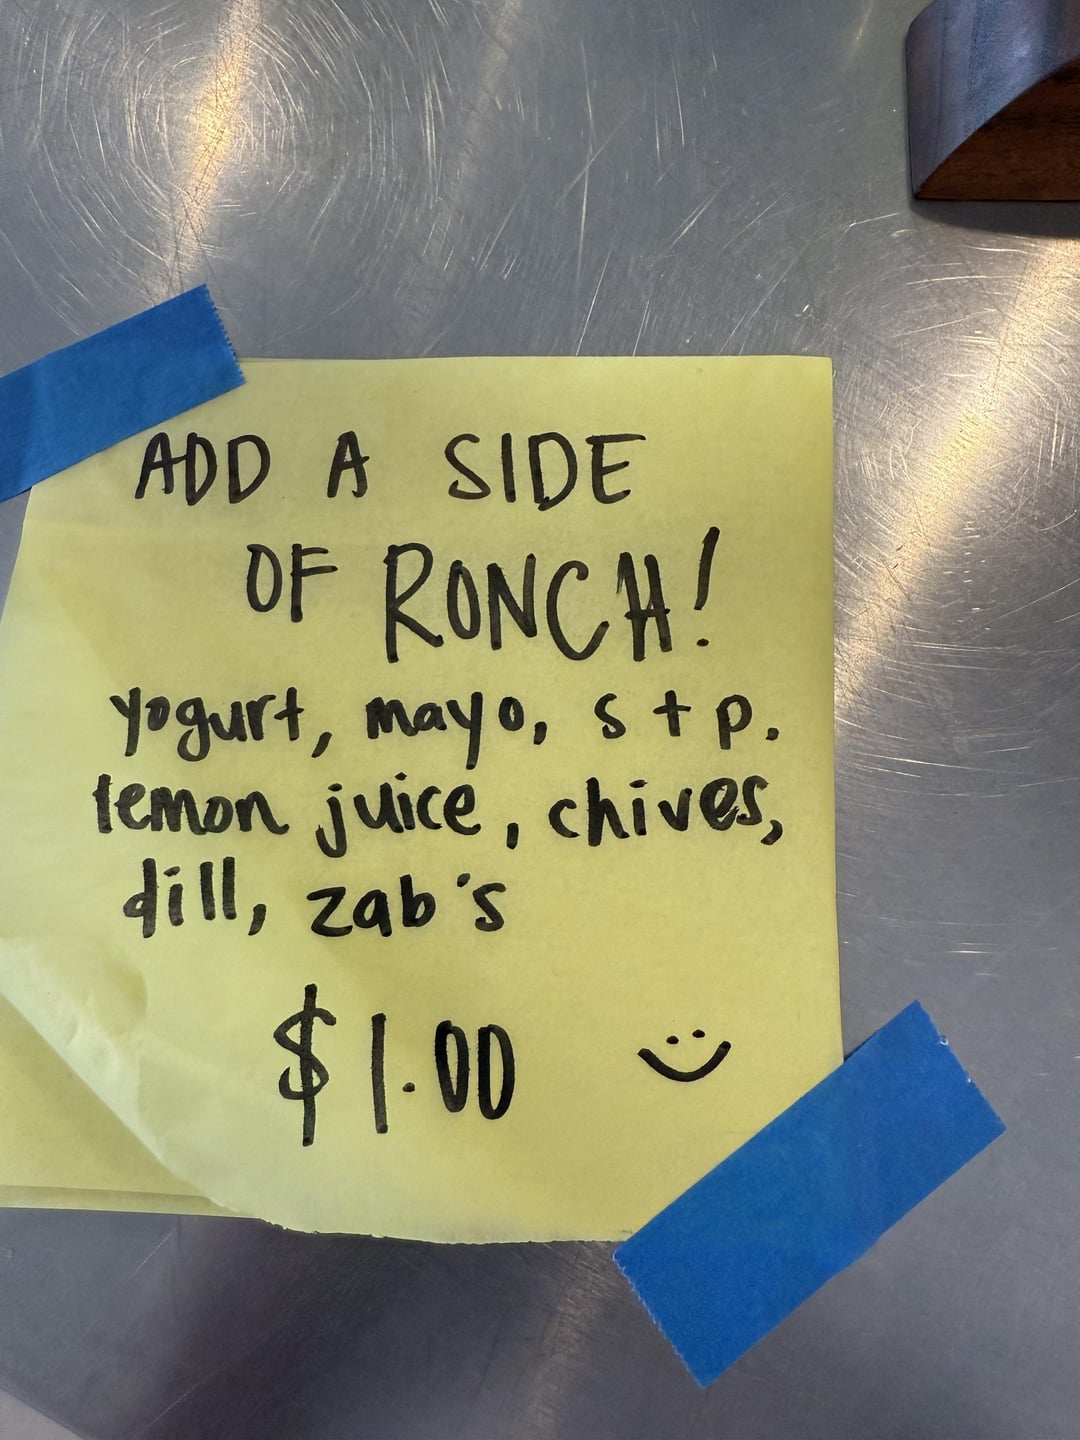 ADD A SIDE
OF RONCH!
yogurt, mayo, s + p.
lemon juice, chives,
dill, zab's
$1.00